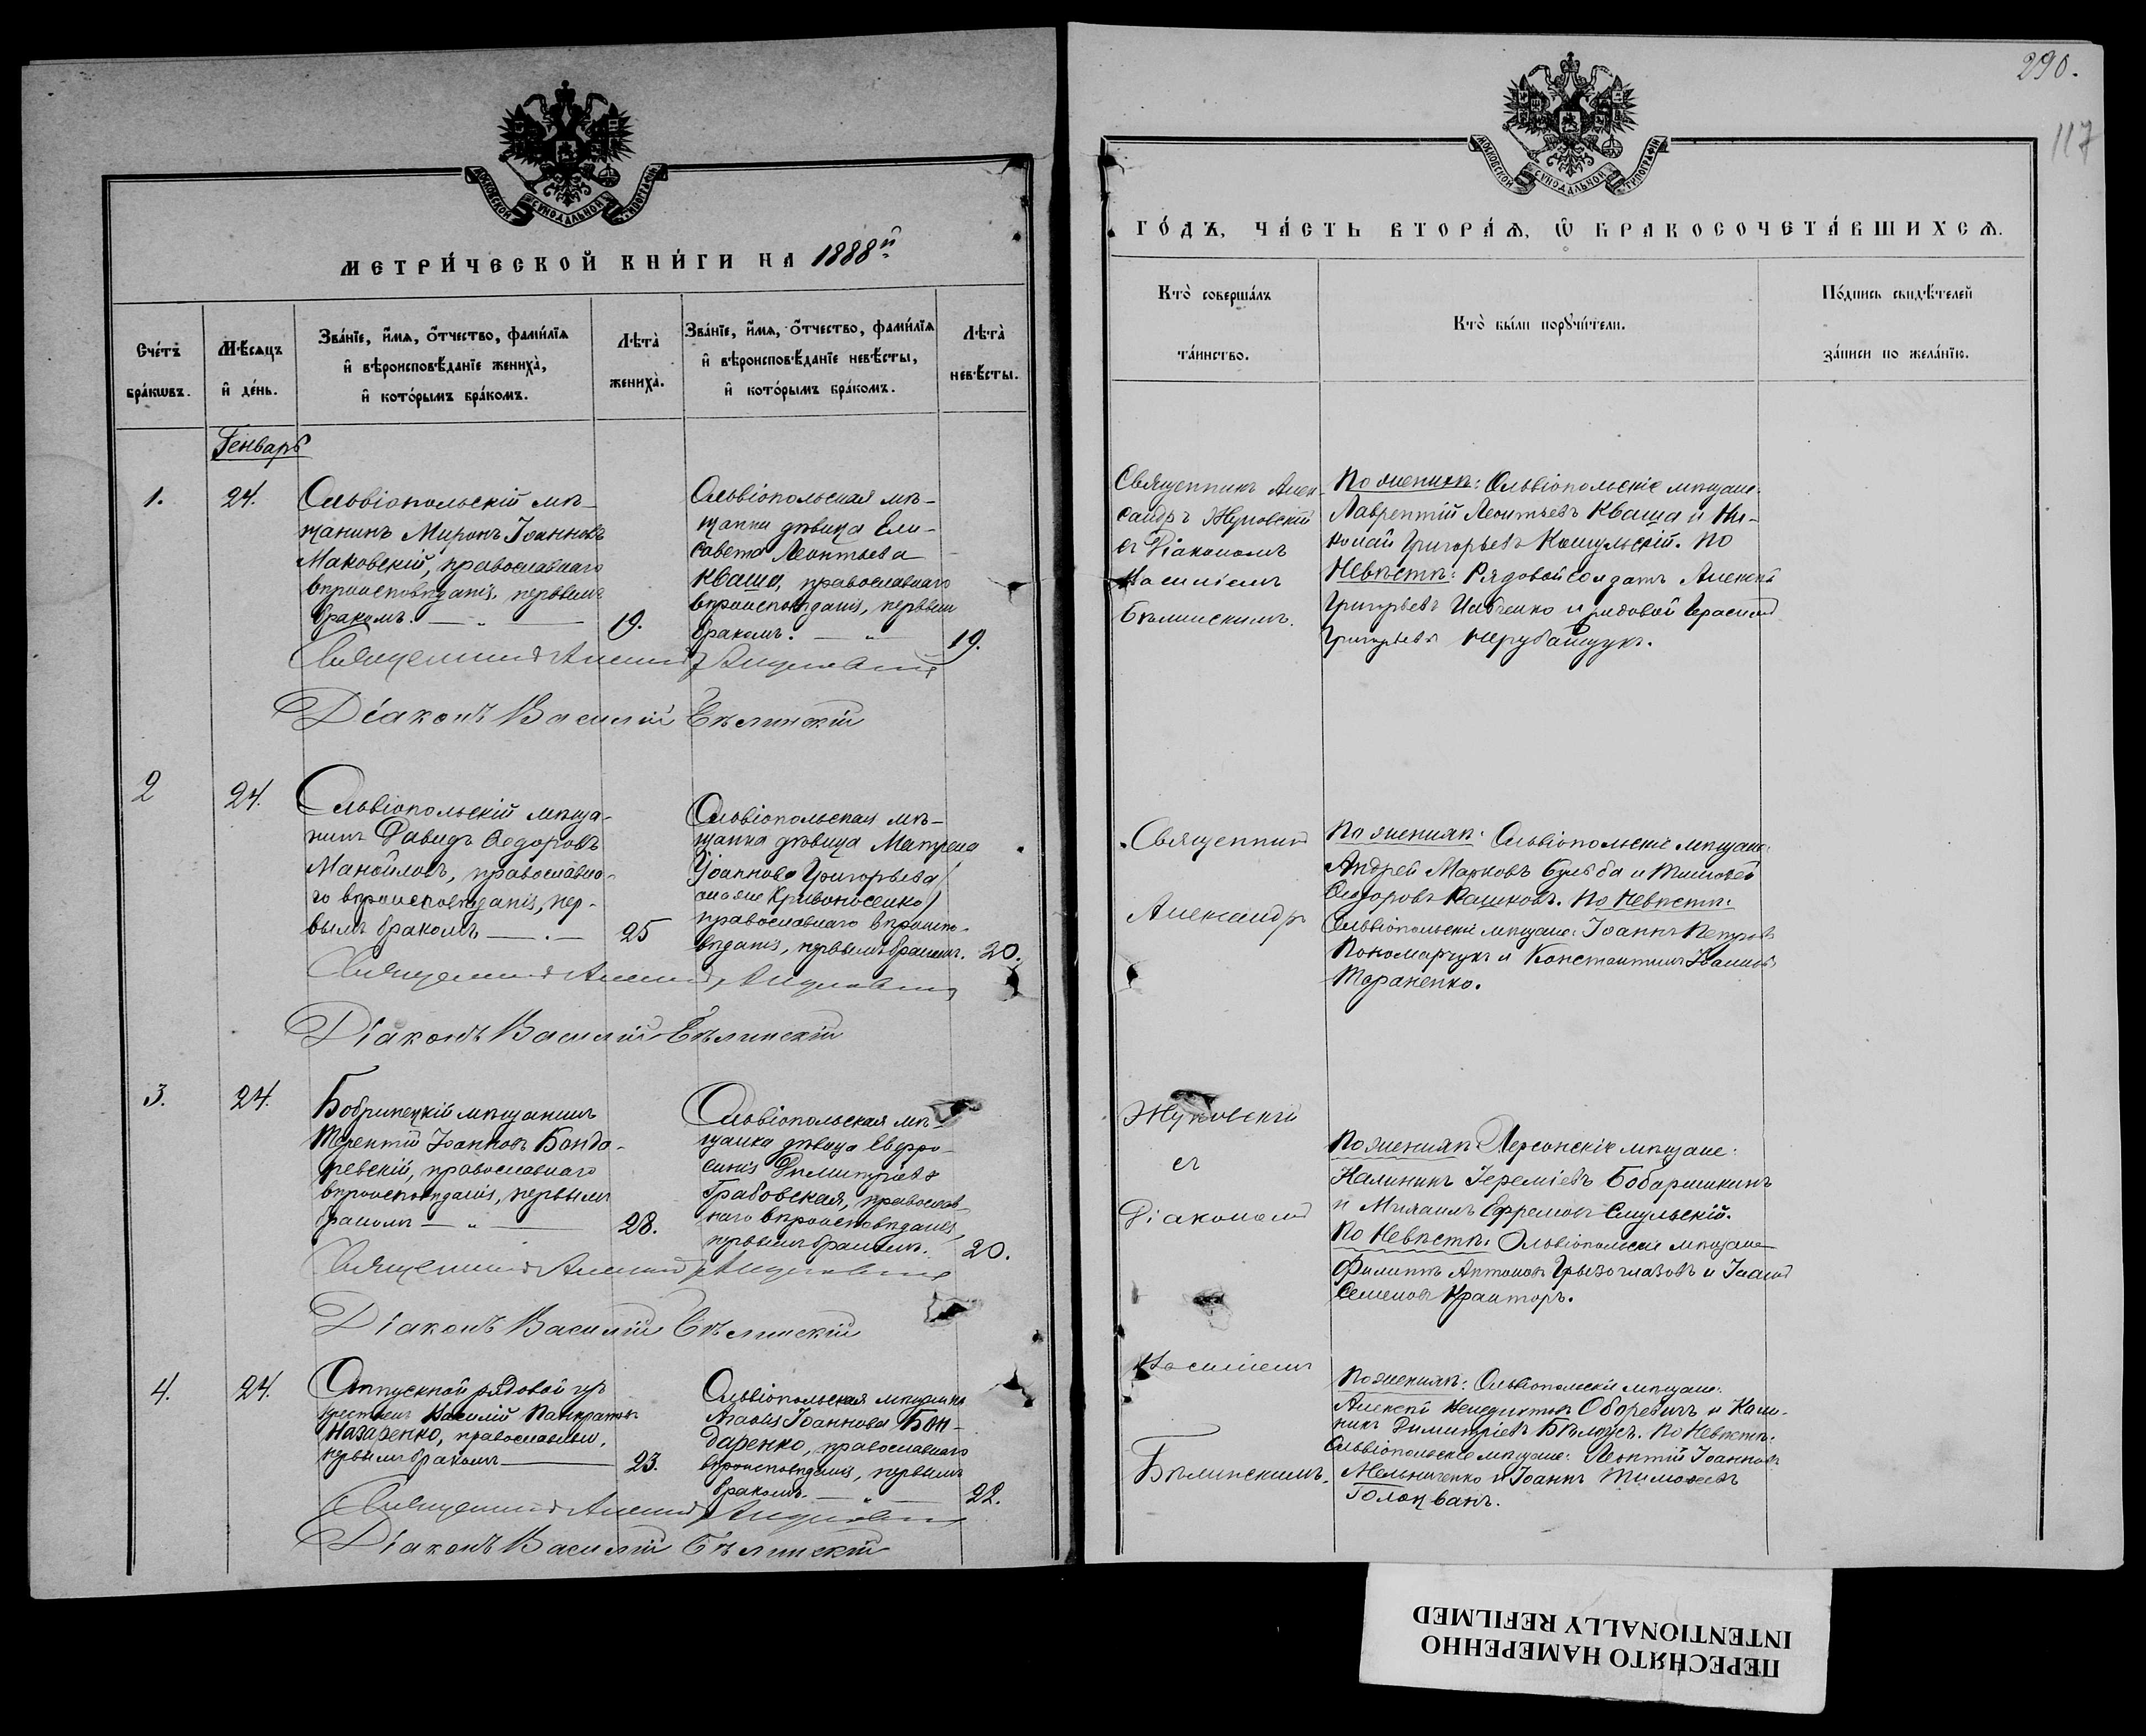 290.
117
МОСКОВСКОЙ СѴНОДАЛЬНОЙ ТИПОГРАФІИ
МЕТРИ́ЧЕСКОЙ КНИ́ГИ НА 1888й
Сче́тъ бра́кωвъ.
Мѣ́сяцъ и҆ де́нь.
Зва́нїе, и҆́мѧ, ѻ҆́тчество, фами́лїѧ
и҆ вѣроисповѣ́данїе жениха̀,
и҆ кото́рымъ бра́комъ.
Лѣта̀ жениха̀.
Зва́нїе, и҆́мѧ, ѻ҆́тчество, фами́лїѧ
и҆ вѣроисповѣ́данїе невѣ́сты,
и҆ кото́рымъ бра́комъ.
Лѣта̀ невѣ́сты.
Генварь
1.
24.
Ольвіопольскій мѣ-
щанинъ Миронъ Іоанновъ
Маковскій, православнаго
вѣроисповѣданія, первымъ
бракомъ.
19.
Ольвіопольская мѣ-
щанка дѣвица Ели-
савета Леонтьева
Кваша, православнаго
вѣроисповѣданія, первым
бракомъ.
19.
Священникъ
Діаконъ Василій Бѣлинскій
2
24.
Ольвіопольскій мѣща-
нинъ Давидъ Ѳедоровъ
Манойловъ, православна-
го вѣроисповѣданія, пер-
вымъ бракомъ
25
Ольвіопольская мѣ-
щанка дѣвица Матрена
Іоаннова Григорьева
она же Кривоносенко
православнаго вѣроиспо-
вѣданія, первымъ бракомъ.
20.
Священникъ
Діаконъ Василій Бѣлинскій
3.
24.
Бобринецкій мѣщанинъ
Терентій Іоанновъ Бонда-
ревскій, православнаго
вѣроисповѣданія, первымъ
бракомъ
28.
Ольвіопольская мѣ-
щанка дѣвица Евфро-
синія Димитріева
Грабовская, православ-
наго вѣроисповѣданія,
первымъ бракомъ.
20.
Священникъ
Діаконъ Василій Бѣлинскій
4.
24.
Отпускной рядовой изъ
крестьянъ Василій Панкратовъ
Назаренко, православный,
первымъ бракомъ
23.
Ольвіопольская мѣщанка
Іоаннова Бон-
даренко, православнаго
вѣроисповѣданія, первымъ
бракомъ.
22.
Священникъ
Діаконъ Василій Бѣлинскій
МОСКОВСКОЙ СѴНОДАЛЬНОЙ ТИПОГРАФІИ
ГО́ДЪ, ЧА́СТЬ ВТОРА́Ѧ, Ѡ҆ БРАКОСОЧЕТА́ВШИХСѦ.
Кто̀ соверша́лъ
та́инство.
Кто̀ бы́ли порꙋчи́тели.
По́дпись свидѣ́телей
за́писи по жела́нїю.
Священникъ Алек-
сандръ Жуковскій
съ Діакономъ
Василіемъ
Бѣлинскимъ.
По женихѣ: Ольвіопольскіе мѣщане:
Лаврентій Леонтьевъ Кваша и Ни-
колай Григорьевъ По
Невѣстѣ: Рядовой солдатъ Алексѣй
Григорьевъ и рядовой Герасимъ
Григорьевъ Нерубайщукъ.
Священникъ
Александръ
По женихѣ: Ольвіопольскіе мѣщане:
Андрей Марковъ Бульба и Тимоѳей
Ѳедоровъ Рашковъ. По Невѣстѣ:
Ольвіопольскіе мѣщане: Іоаннъ Петровъ
Пономарчукъ и Константинъ Іоанновъ
Тараненко.
Жуковскій
съ
Діакономъ
По женихѣ: Херсонскіе мѣщане:
Калиникъ Іереміевъ Бобаришкинъ
и Михаилъ Ефремовъ Смульскій.
По Невѣстѣ: Ольвіопольскіе мѣщане
Филиппъ Антоновъ Грызоглазовъ и Іоаннъ
Семеновъ Кранторъ.
Василіемъ
Бѣлинскимъ.
По женихѣ: Ольвіопольскіе мѣщане:
Алексѣй Венедиктовъ Оборевичъ и Кали-
никъ Димитріевъ Бѣлоусъ. По Невѣстѣ:
Ольвіопольскіе мѣщане: Леонтій Іоанновъ
Мельниченко и Іоаннъ Тимоѳеевъ
Голокванъ.
ПЕРЕСНЯТО НАМЕРЕННО
INTENTIONALLY REFILMED